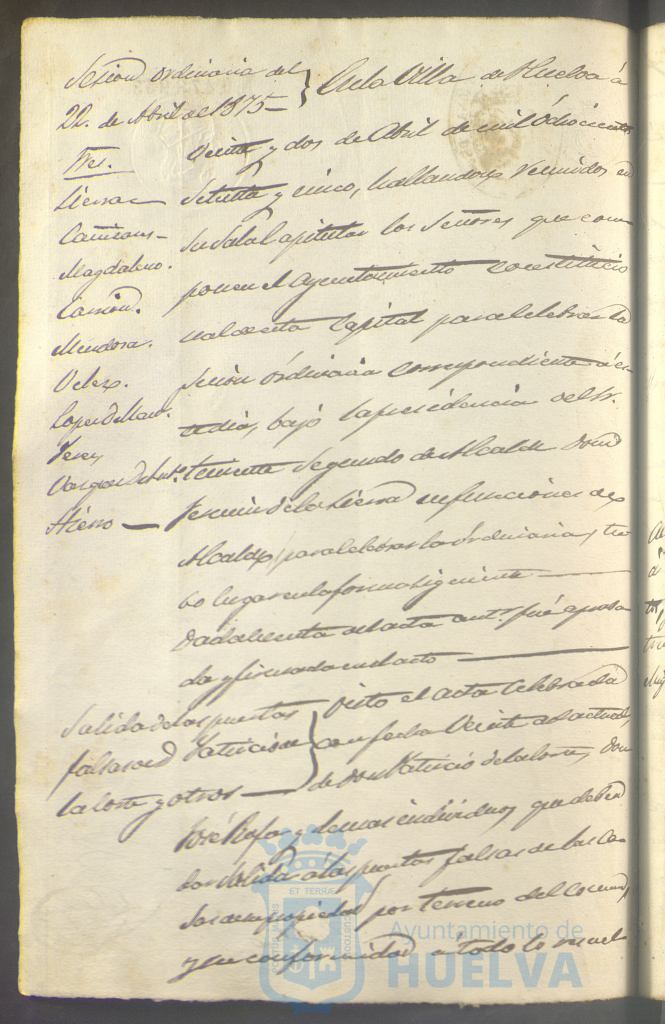 Sesion ordinaria del
22. de Abril de 1875—
Sres.
Sierra
Cañizares
Magdaleno.
Carrion.
Mendoza.
Velez.
Lopez de
Perez
Vazquez de
Hierro —
En la Villa de Huelva á
veinte y dos de Abril de mil Ochocientos
Setenta y cinco, hallandose reunidos en
su Sala Capitular los Señores que com
ponen el Ayuntamiento Constitucio
nal de esta Capital para celebrar la
Sesion órdinaria correspondiente á es
te dia, bajo la presidencia del Sr.
teniente Segundo de Alcalde Don
Fermin de la Sierra en funciones de
Alcalde, para celebrar la órdinaria, tu
bo lugar en la forma siguiente —
Dada cuenta del acta antr. fué aproba
da y firmada en el acto —
Salida de las puertas
falsas de D Patricio de
la Corte y otros —
Visto el acta celebrada
con fecha Veinte del actual,
de Don Patricio de la Corte, Don
José y demas individuos que deben
dar Salida a las puertas falsas de las Ca
sas de su propiedad por terreno del Comun,
y en conformidad á todo lo
ET TERRÆ
Ayuntamiento de
HUELVA